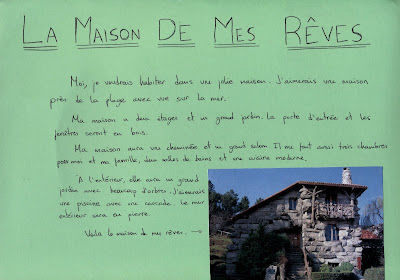 LA MAISON DE MES RÊVES
Moi, je voudrais habiter dans une jolie maison. J'aimerais une maison
près de la plage avec vue sur la mer.
Ma maison a deux étages et un grand jardin. La porte d'entrée et les
fenêtres seront en bois.
Ma maison aura une cheminée et un grand salon. Il me faut aussi trois chambres
pour moi et ma famille, deux salles de bains et une cuisine moderne.
À l'extérieur, elle aura un grand
jardin avec beaucoup d'arbres. J'aimerais
une piscine avec une cascade. Le mur
extérieur sera en pierre.
Voilà la maison de mes rêves.